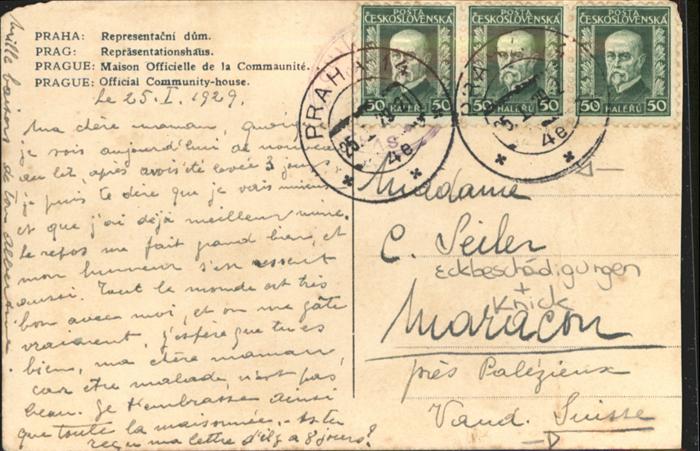 PRAHA: Representační dům.
PRAG: Repräsentationshaus.
PRAGUE: Maison Officielle de la Communauté.
PRAGUE: Official Community-house.
Le 25. I. 1929.
Ma chère maman, Quoique
je sois aujourd'hui de nouveau
au lit, après avoir été levée 3 jours
je puis te dire que je vais mieux
et que j'ai déjà meilleure mine.
Le repos me fait grand bien, et
mon humeur s'en ressent
aussi. Tout le monde est très
bon avec moi, et on me gâte
vraiment. J'espère que tu es
bien, ma chère maman,
car être malade, n'est pas
beau. Je t'embrasse ainsi
que toute la maisonnée. As-tu
reçu ma lettre d'il y a 8 jours?
Mille baisers de ton
POŠTA
ČESKOSLOVENSKÁ
50 HALÉŘŮ 50
POŠTA
ČESKOSLOVENSKÁ
50 HALÉŘŮ 50
POŠTA
ČESKOSLOVENSKÁ
50 HALÉŘŮ 50
PRAHA
25. I. 29
4e
PRA
25
4e
Madame
C. Seiler
Eckbeschädigungen
+
Knick
Maracon
près Palézieux
Vaud. Suisse